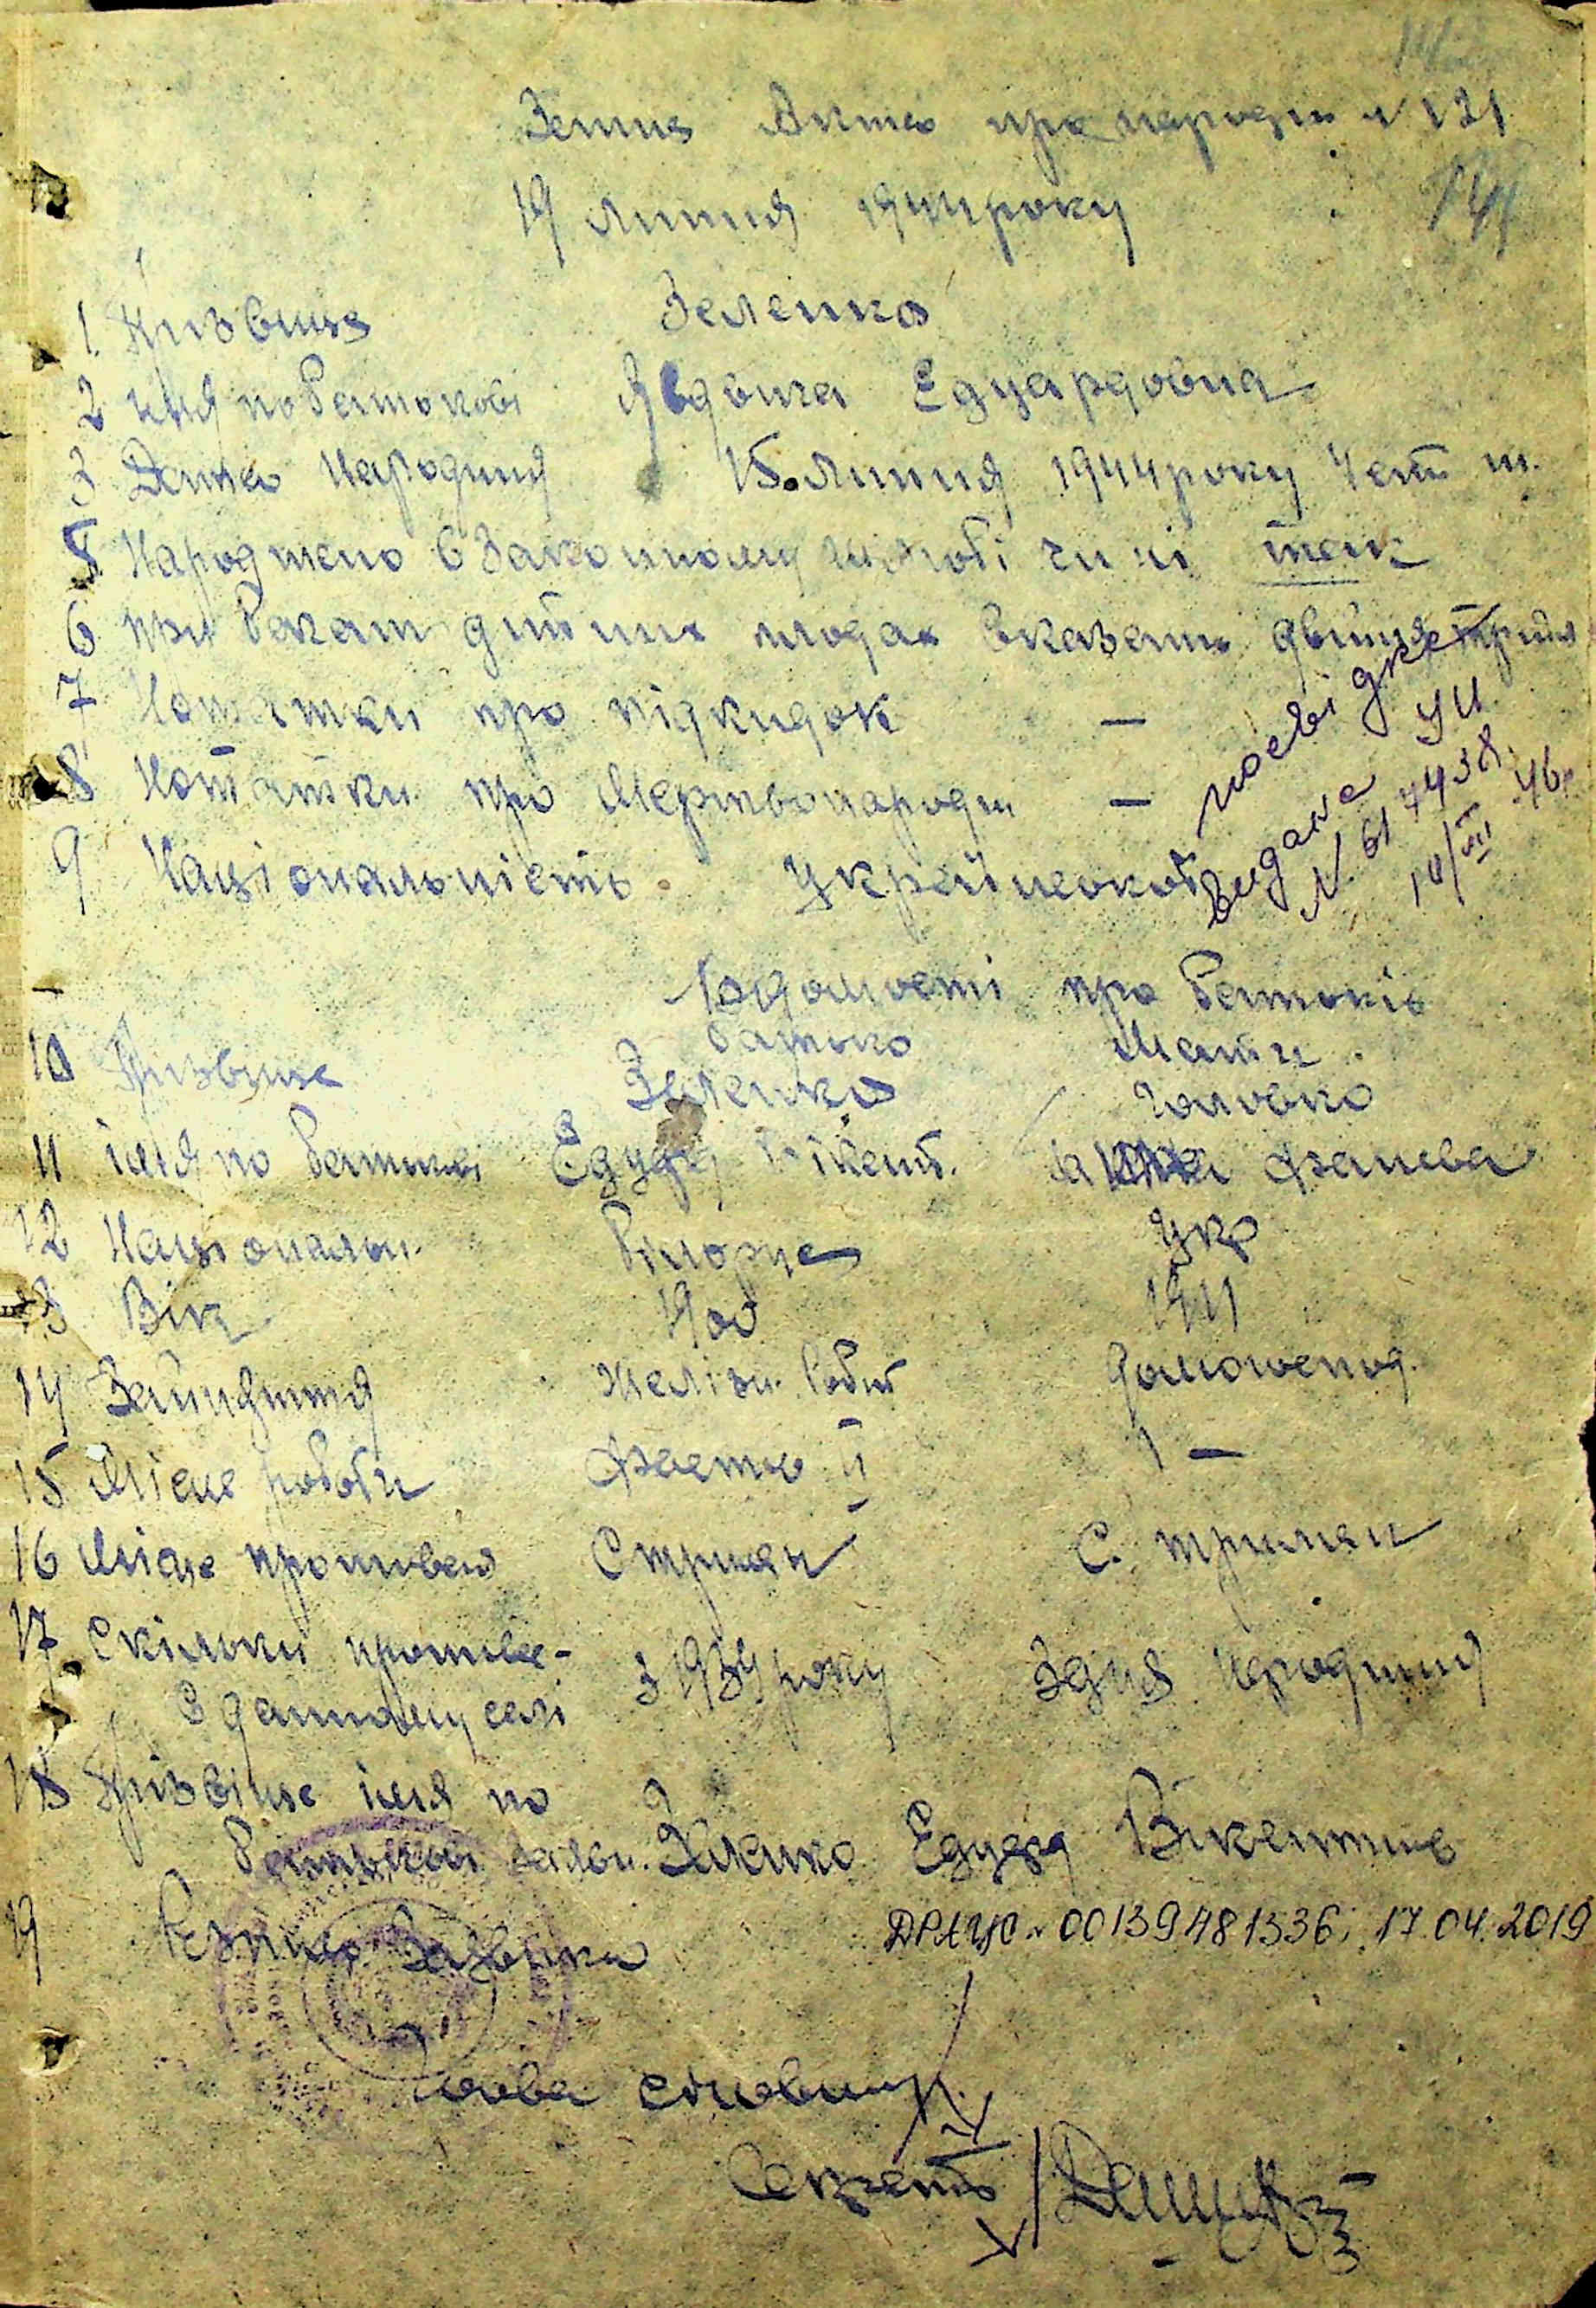 Запис Акта про народж N 121
19 Липня 1944 року
1. Прізвище Зеленко
2 імя по Батькові Ядвига Едуардовна
3 Дата Народжиня 15. Липня 1944 року
5 Народжено в Законному шлюбі чи ні так
6 при багат дитинн родах вказати двійня трійня
7 Нотатки про підкидок —
8 Нотатки про Мертвонародж —
9 Національність. Українской
посвідка
видана УИ
N. 617438
10/XII 46
Відомості про батьків
батько Мати
10 Прізвище Зеленко Головко
11 імя по батькові Едуард Вікент.
12 Національн. Білорус Укр
13 Вік 1900 1911
14 Зайняття Желізн. Робіт домогоспод.
15 Місце роботи Фастів II —
16 Місце проживан Триліси С. Триліси
17 Скільки прожива-
в данному селі з 1934 року Здня народжиня
18 Прізвище імя по
Батькові заявн. Зеленко Едуард Вікентіив
19
ДРАЦС N 00139481336, 17.04.2019
Голова
Секрет